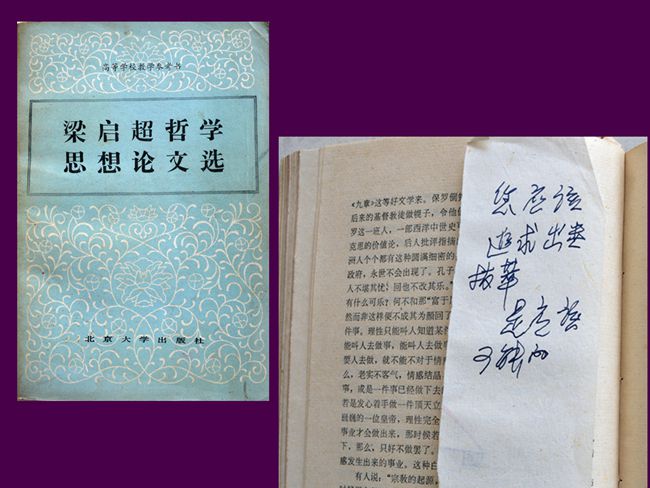 高等学校教学参考书
梁启超哲学
思想论文选
北京大学出版社
《九章》这等好文学来。保罗倒
后来的基督教徒做幌子，令他
罗这一班人，一部西洋中世史
克思的价值论，后人批评指摘
洲人个个都有这种圆满细密的
政府，永世不会出现了。孔子
人不堪其忧，回也不改其乐。”
有什么可乐？何不和那“富于
然而非这样便不成其为颜回了
件事。理性只能叫人知道某
能叫人去做事，能叫人去做
要人去做，就不能不对于情
么，老实不客气，情感结晶
事，或是一件事已经做下去
若是发心着手做一件顶天立
巍巍的一位皇帝，理性完全
事业才会做出来，那时候若
下，那么，只好不做罢了。
感发生出来的事业。这种
有人说：“宗教的起源，
您应该
追求出类
拔萃
是应该